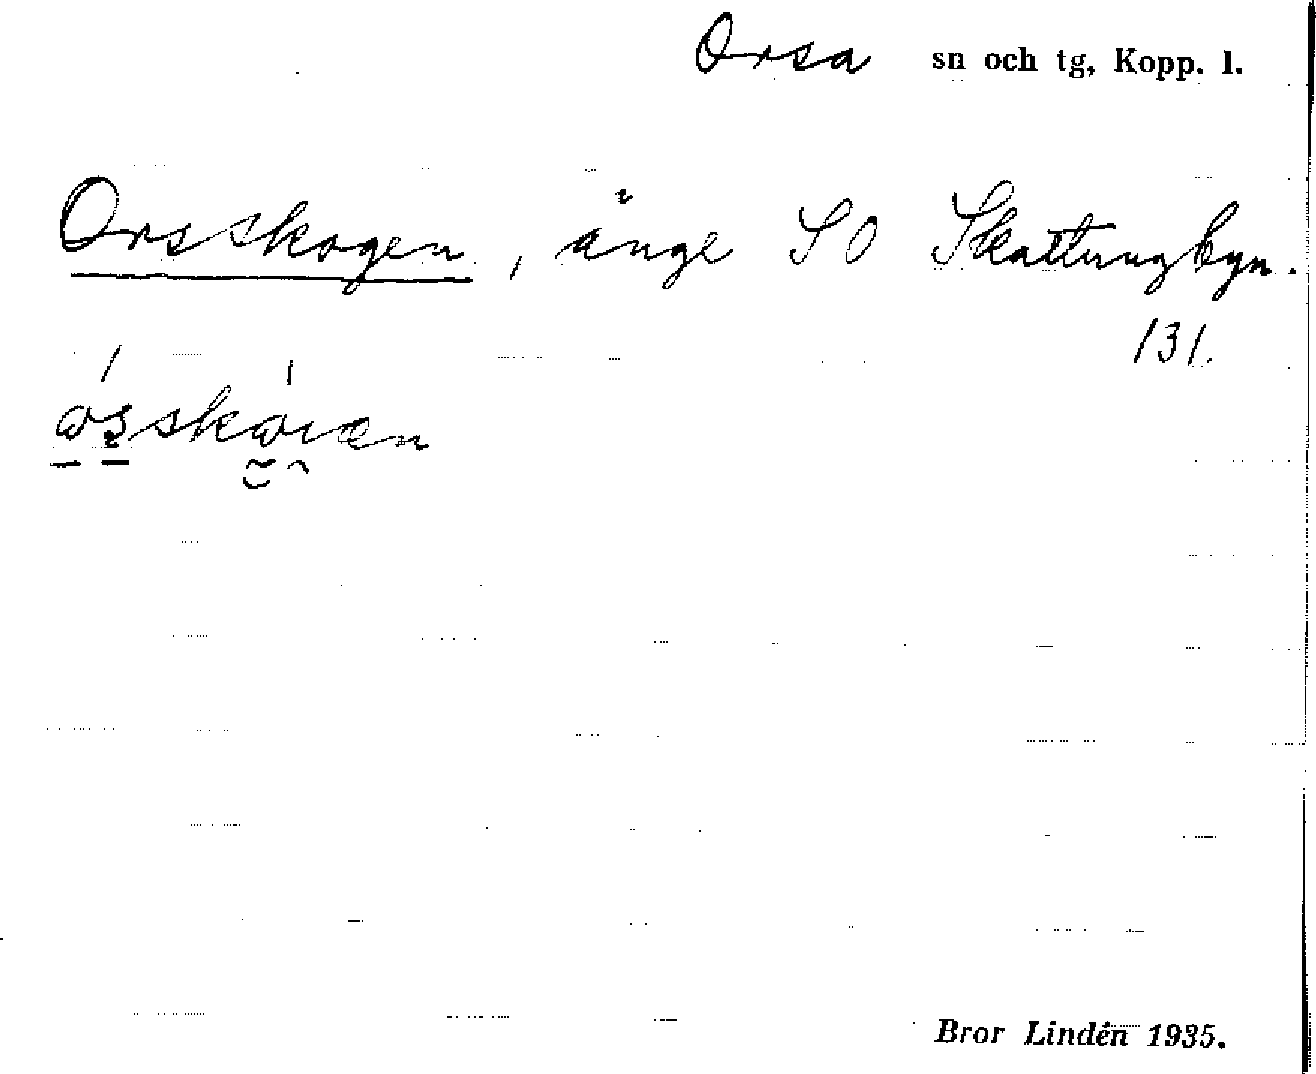 Orsa sn och tg, Kopp. l.
Orsskogen, änge SO Skattungbyn.
131.
Bror Lindén 1935.